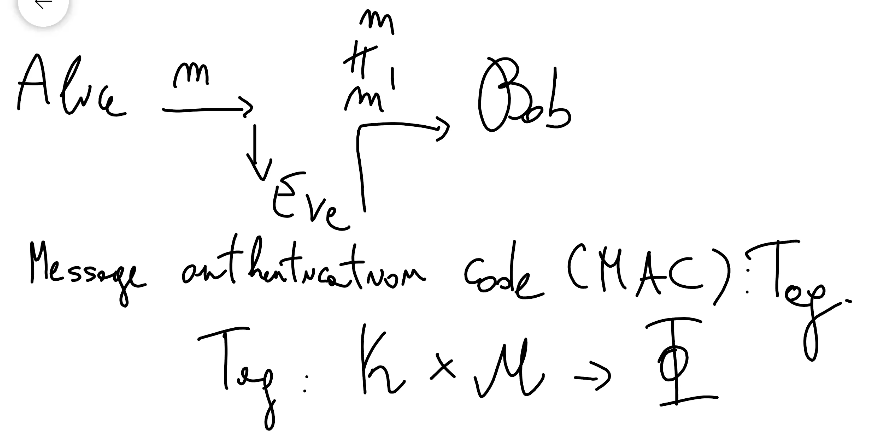 m
Alice m → ≠ Bob
m'
Eve
Message authentication code (MAC): Tag.
Tag: K × M → Φ